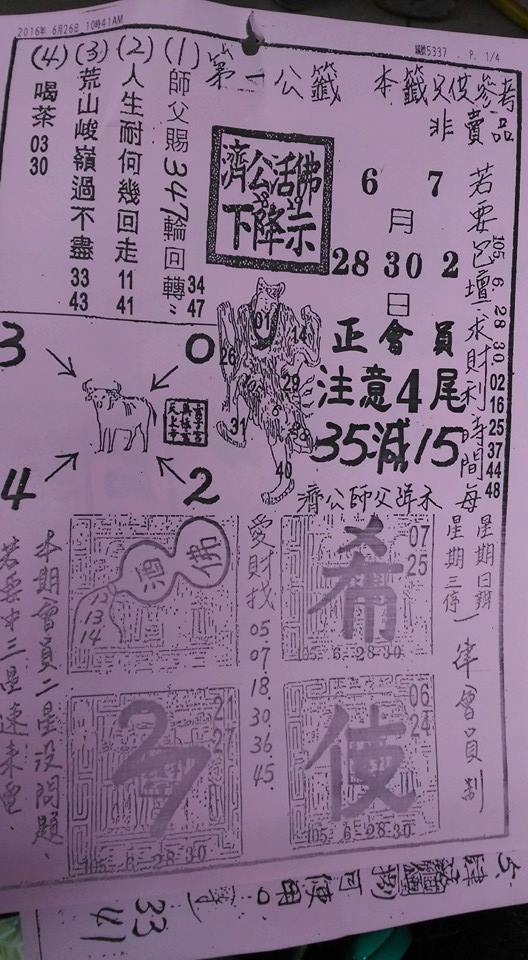 2016年 6月26日 10時41AM
編號5337 . P. 1/4
第一公籤
本籤只供參考
非賣品
(1)師父賜347輪回轉
34
47
(2)人生耐何幾回走
11
41
(3)荒山峻嶺過不盡
33
43
(4)喝茶
03
30
濟公活佛
下降示
6 7
月
28 30 2
日
正會員
注意4尾
35減15
濟公師父降示
若要
壇求財利時間每
星期日辦
星期三停
一律會員制
105 6 28 30 02 16 25 37 44 48
3
0
4
2
01
14
26
29
31
40
愛財找
05 07 18 30 36 45
酒
佛
13
14
希
07
25
105. 6. 28-30
21
27
105. 6. 28-30
使
06
24
105. 6. 28-30
本期會員二星没問題、
若要中三星速来電、
33
41